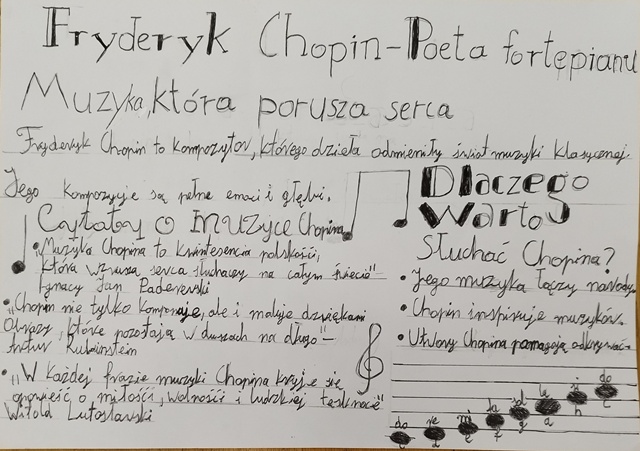 Fryderyk Chopin-Poeta fortępianu
Muzyka, która porusza serca
Fryderyk Chopin to kompozytor, którego dzieła odmieniły świat muzyki klasycznej.
Jego kompozycje są pełne emocji i głębi.
Cytaty o MUZYCE Chopina
• „Muzyka Chopina to kwintesencja polskości,
która wzrusza serca słuchaczy na całym świecie"
Ignacy Jan Paderewski
• „Chopin nie tylko komponuje, ale i maluje dźwiękami
obrazy, które pozostają w duszach na długo" –
Artur Rubinstein
• „W każdej frazie muzyki Chopina kryje się
opowieść o miłości, wolności i ludzkiej tęsknocie"
Witold Lutosławski
Dlaczego
Warto
Słuchać Chopina?
• Jego muzyka łączy narody.
• Chopin inspiruje muzyków.
• Utwory Chopina pomagają odkrywać
do re mi fa sol la si do
c d e f g a h c